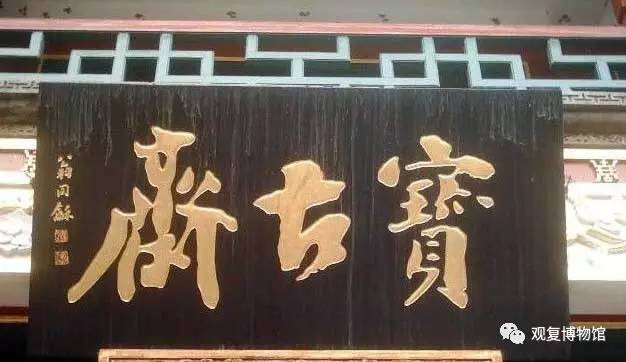 寶古齋
翁同龢
观复博物馆